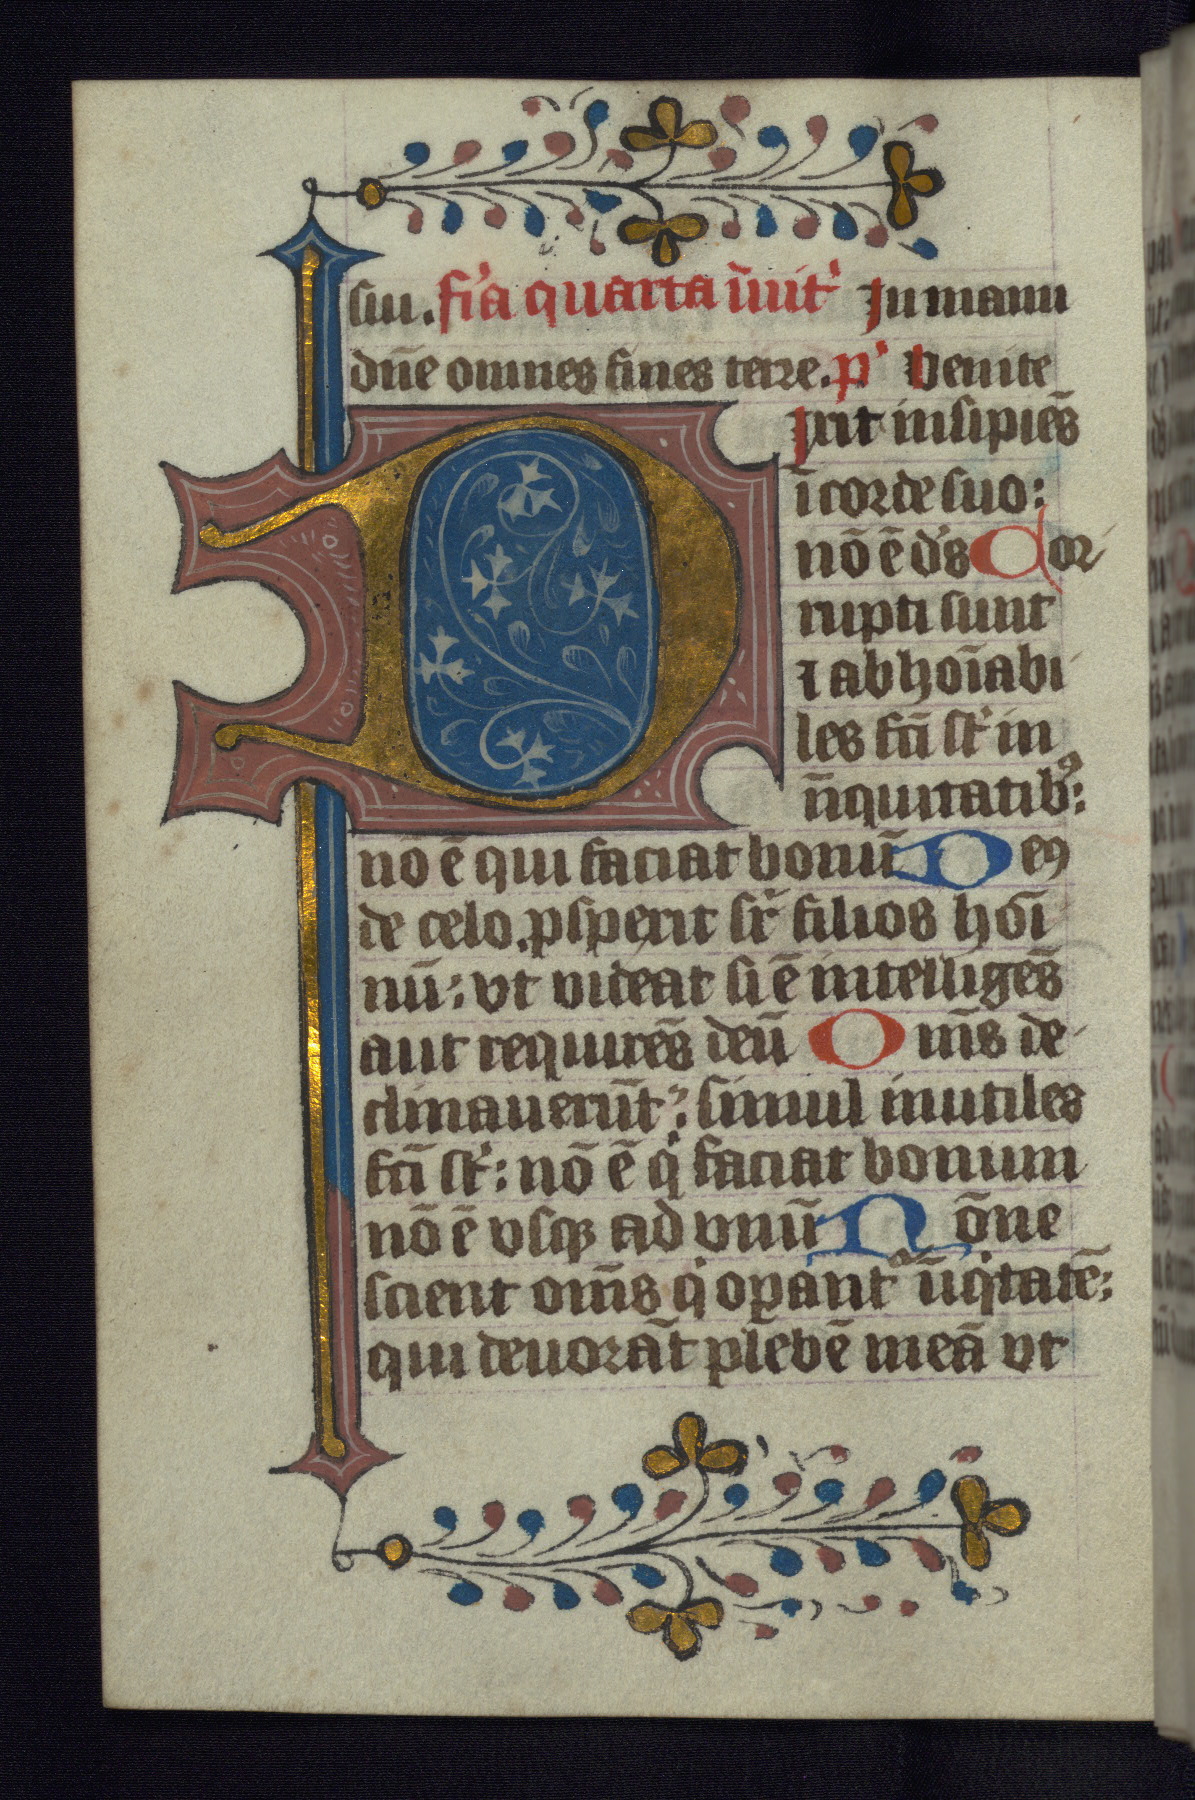 suu. fi'a quarta ĩuit' In manu
dñe omnes fines terre. p' Venite
Dixit insipiẽs
ĩ corde suo:
nõ ẽ d's Cor
rupti sunt
⁊ abhoĩabi
les fcĩ st' in
ĩiquitatib9:
nõ ẽ qui faciat bonũ De9
de celo .pspexit sr̃ filios hoĩ
nũ: vt videat si ẽ intelligẽs
aut requirẽs deũ Om̃s de
clinauerũt: simul inutiles
fcĩ st': nõ ẽ q' faciat bonum
nõ ẽ vsq; ad vnũ Nõne
scient om̃s q' opant' ĩiq'tatẽ:
qui deuorãt plebẽ meã vt